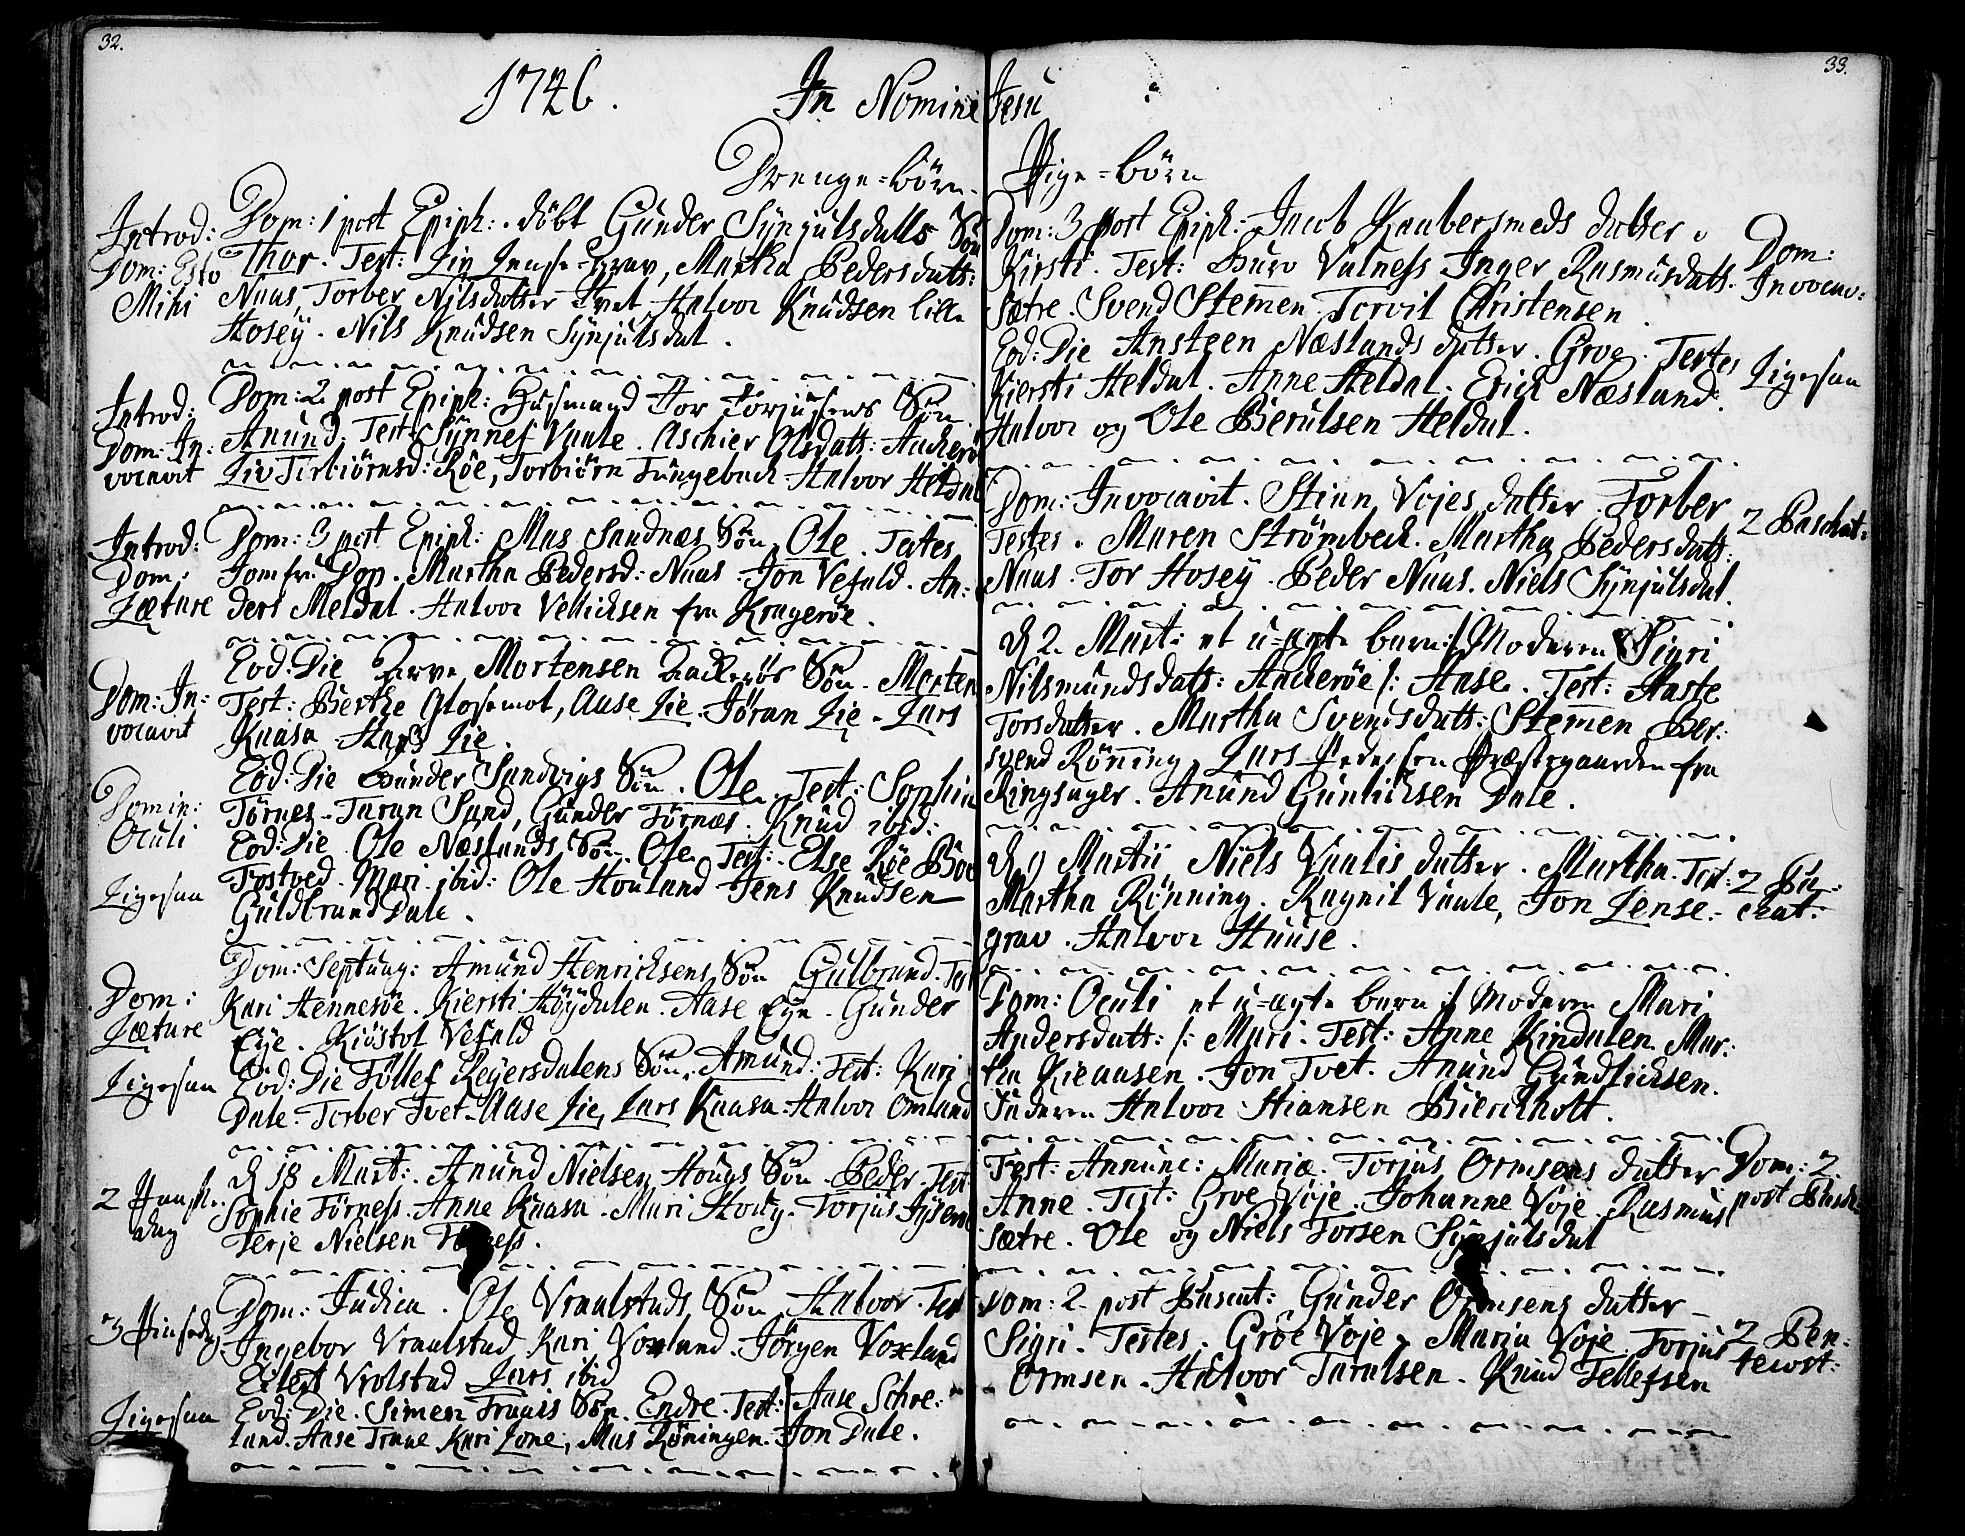 32.
1746.
In Nomine
Drenge-börn.
Introd: Dom: Esto Mihi
Dom: 1 post Epiph: döbt Gunder Synjulsdalls Sön
Thor. Test: Liv Lense-grav, Martha Pedersdatt:
Naas, Torber Nilsdatter Tvet. Halvor Knudsen lille
Hosëy. Nils Knudsen Synjulsdal.
Introd: Dom: Invocavit
Dom: 2 post Epiph: Husmand Tor Torjusens Sön
Anund. Test: Synnef Vaale. Aschier Olsdatt: Aackerö
Liv Torbiörnsd: Röe, Torbiörn Tungebach. Halvor Heldal
Introd: Dom: Læture
Dom: 3 post Epiph: Mas Sandnæs Sön. Ole. Testes
Jomfru Dop. Martha Pedersd: Naas. Jon Vefald. An:
ders Meldal. Halvor Vellicksen fra Kragerøe.
Dom: Invocavit
Eod: Die Terve Mortensen Sön. Morten
Test: Berthe Glosemot, Aase Lie. Jöran Lie. Lars
Kaasa. Lie.
Domin: Oculi
Eod: Die Gunder Sandvigs Sön. Ole. Test: Sophia
Törnes. Taran Sund, Gunder Törnæs. Knud ibid:
Ligesaa
Eod: Die Ole Næslands Sön. Ole. Test: Else Röe Boe
Tostved. Mari ibid: Ole Houland Jens Knudsen
Guldbrand Dale.
Dom: Læture
Dom: Septuag: Amund Henricksens Sön Gulbrand. Test
Kari Hennesöe. Kiersti Höydalen. Aase Eye. Gunder
Eye. Kiöstol Vefald
Ligesaa
Eod: Die Töllef Reyersdalens Sön. Amund: Test: Kari
Dale. Torber Tvet. Aase Lie, Lars Kaasa. Halvor Omland
2 dag
d. 18 Mart: Anund Nielsen Hougs Sön. Peder. Test
Sophie Törness. Anne Kaasa. Mari Hosëy. Torjus
Terje Nielsen
3
Dom: Judica. Ole Vraalstads Sön Halvor. Test
Ingebor Vraalstad. Kari Voxland. Jörgen Voxland
Eilert Vrolstad Lars ibid
Ligesaa
Eod: Die. Simen Traaes Sön. Endre. Test: Aase Schre:
land. Aase Traae Kari Lone, Mas Röningen. Jon Dale.
33.
Jesu
Pige-börn
Dom: 3 post Epiph: Jacob Kaabersmeds datter
Kirsti. Test: Guro Valness Inger Rasmusdatt.
Sætre. Svend Stemen Torvil Christensen
Dom: Invocav:
Eod: Die Ansteen Næslands datter. Groe. Testes
Kiersti Heldal. Anne Heldal. Erich Næsland.
Halvor og Ole Berulsen Heldal.
Ligesaa
Dom: Invocavit. Stian Vojes datter Torber
Testes. Maren Strömbeck. Martha Pedersdatt:
Naas. Tor Hosëy. Peder Naas. Niels Synjulsdal.
2 Paschat:
d. 2. Mart: et u-ægte barn /: Moderen Sigri
Nilsmundsdatt: Aackerøe /: Aase. Test: Aaste
Torsdatter. Martha Svendsdatt: Stemen Ber:
svend Röning. Lars Pedersen Præstegaarden fra
Ringsager. Anund Gunlicksen Dale.
d. 9 Martii Niels Vaalis datter. Martha. Test:
Martha Rönning. Ragnil Vaale, Jon Lense:
grav. Halvor Haase.
2 Pa: schat:
Dom: Oculi et u-ægte barn /: Moderen Mari
Andersdatt: /: Mari. Test: Anne Kindalen. Mar:
tha Kieaasen. Jon Tvet. Anund Gundlicksen.
Halvor Hiansen Bierckholt.
Fest: Annunc: Mariæ. Torjus Ormsens datter
Anne. Test: Groe Voje. Johanne Voje. Rasmus
Sætre. Ole og Niels Torsen Synjulsdal
Dom: 2 post Pasch:
Dom: 2 post Pascat: Gunder Ormsens datter
Sigri. Testes. Gröe Voje. Maria Voje. Torjus
Ormsen. Halvor Taralsen. Knud Tellefsen
2 Pen: tecost: